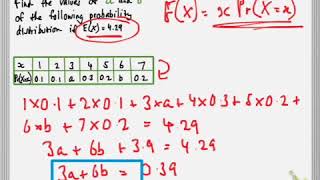 Find the values of a and b
of the following probability
distribution if E(X)=4.29
E(X) = x Pr(X=x)
x 1 2 3 4 5 6 7
Pr(X=x) 0.1 0.1 a 0.3 0.2 b 0.2
1×0.1+2×0.1+3×a+4×0.3+5×0.2+
6×b+7×0.2 = 4.29
3a+6b+3.9 = 4.29
3a+6b = 0.39